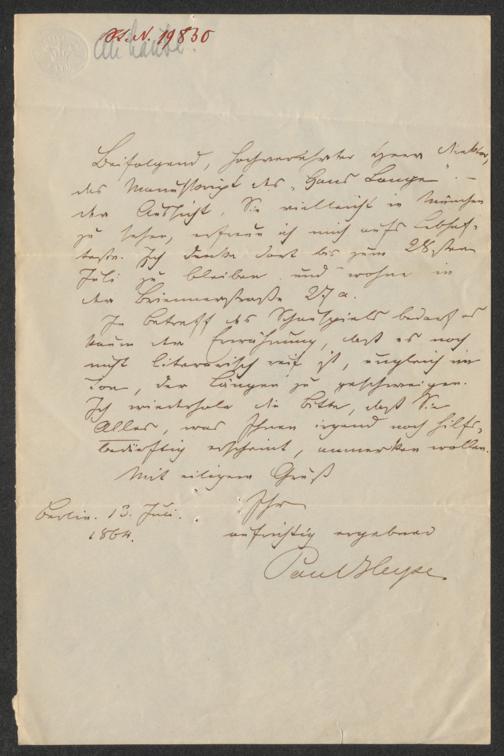 H.I.N. 19830
An Laube.
Beifolgend, hochverehrter Herr Direktor,
das Manuskript des „Hans Lange“. –
der Aussicht, Sie vielleicht in München
zu sehen, erfreue ich mich aufs Lebhaf-
teste. Ich denke dort bis zum 28sten
Juli zu bleiben und wohne in
der Briennerstraße 27 a.
In betreff des Schauspiels bedarf es
kaum der Erwähnung, daß es noch
nicht literarisch reif ist, ungleich im
Ton, der Längen zu geschweigen.
Ich wiederhole die Bitte, daß Sie
Alles, was Ihnen irgend noch hilfs-
bedürftig erscheint, anmerken wollen.
Mit eiligem Gruß
Ihr
Berlin. 13. Juli.
1864.
aufrichtig ergebener
Paul Heyse.